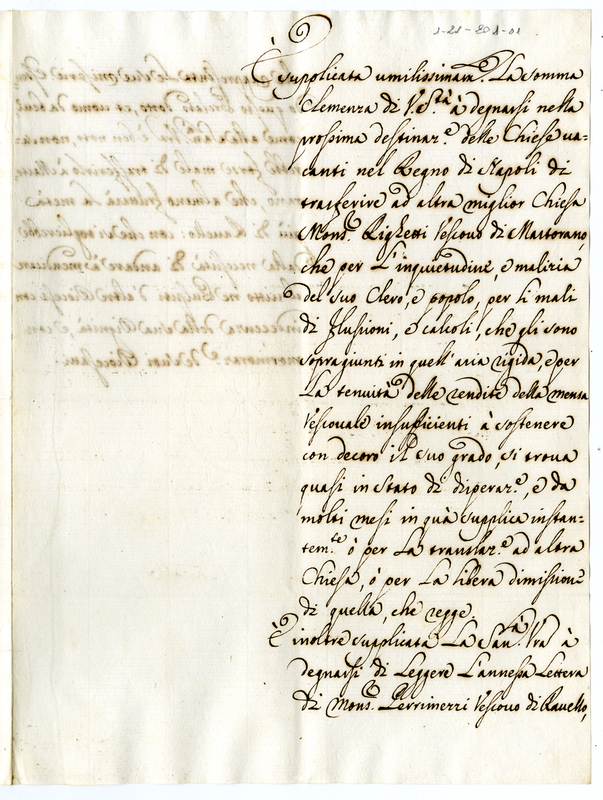 1-21-201-01
È supplicata umilissimam.te La somma
Clemenza di V. S.tà à degnarsi nella
prossima destinaz.e delle Chiese va-
canti nel Regno di Napoli di
trasferire ad altra miglior Chiesa
Mons.r Righetti Vescovo di Martorano,
che per L'inquietudine, e malizia
del suo Clero, e popolo, per li mali
di flussioni, e calcoli, che gli sono
sopragiunti in quell'aria rigida, e per
La tenuità delle rendite della mensa
Vescovale insufficienti à sostenere
con decoro il suo grado, si trova
quasi in stato di disperaz.e, e da
molti mesi in quà supplica instan-
tem.te ò per La translaz.e ad altra
Chiesa, ò per La libera dimissione
di quella, che regge.
È inoltre supplicata La San.tà Vra à
degnarsi di Leggere L'annessa Lettera
di Mons.r Perrimezzi Vescovo di Ravello,